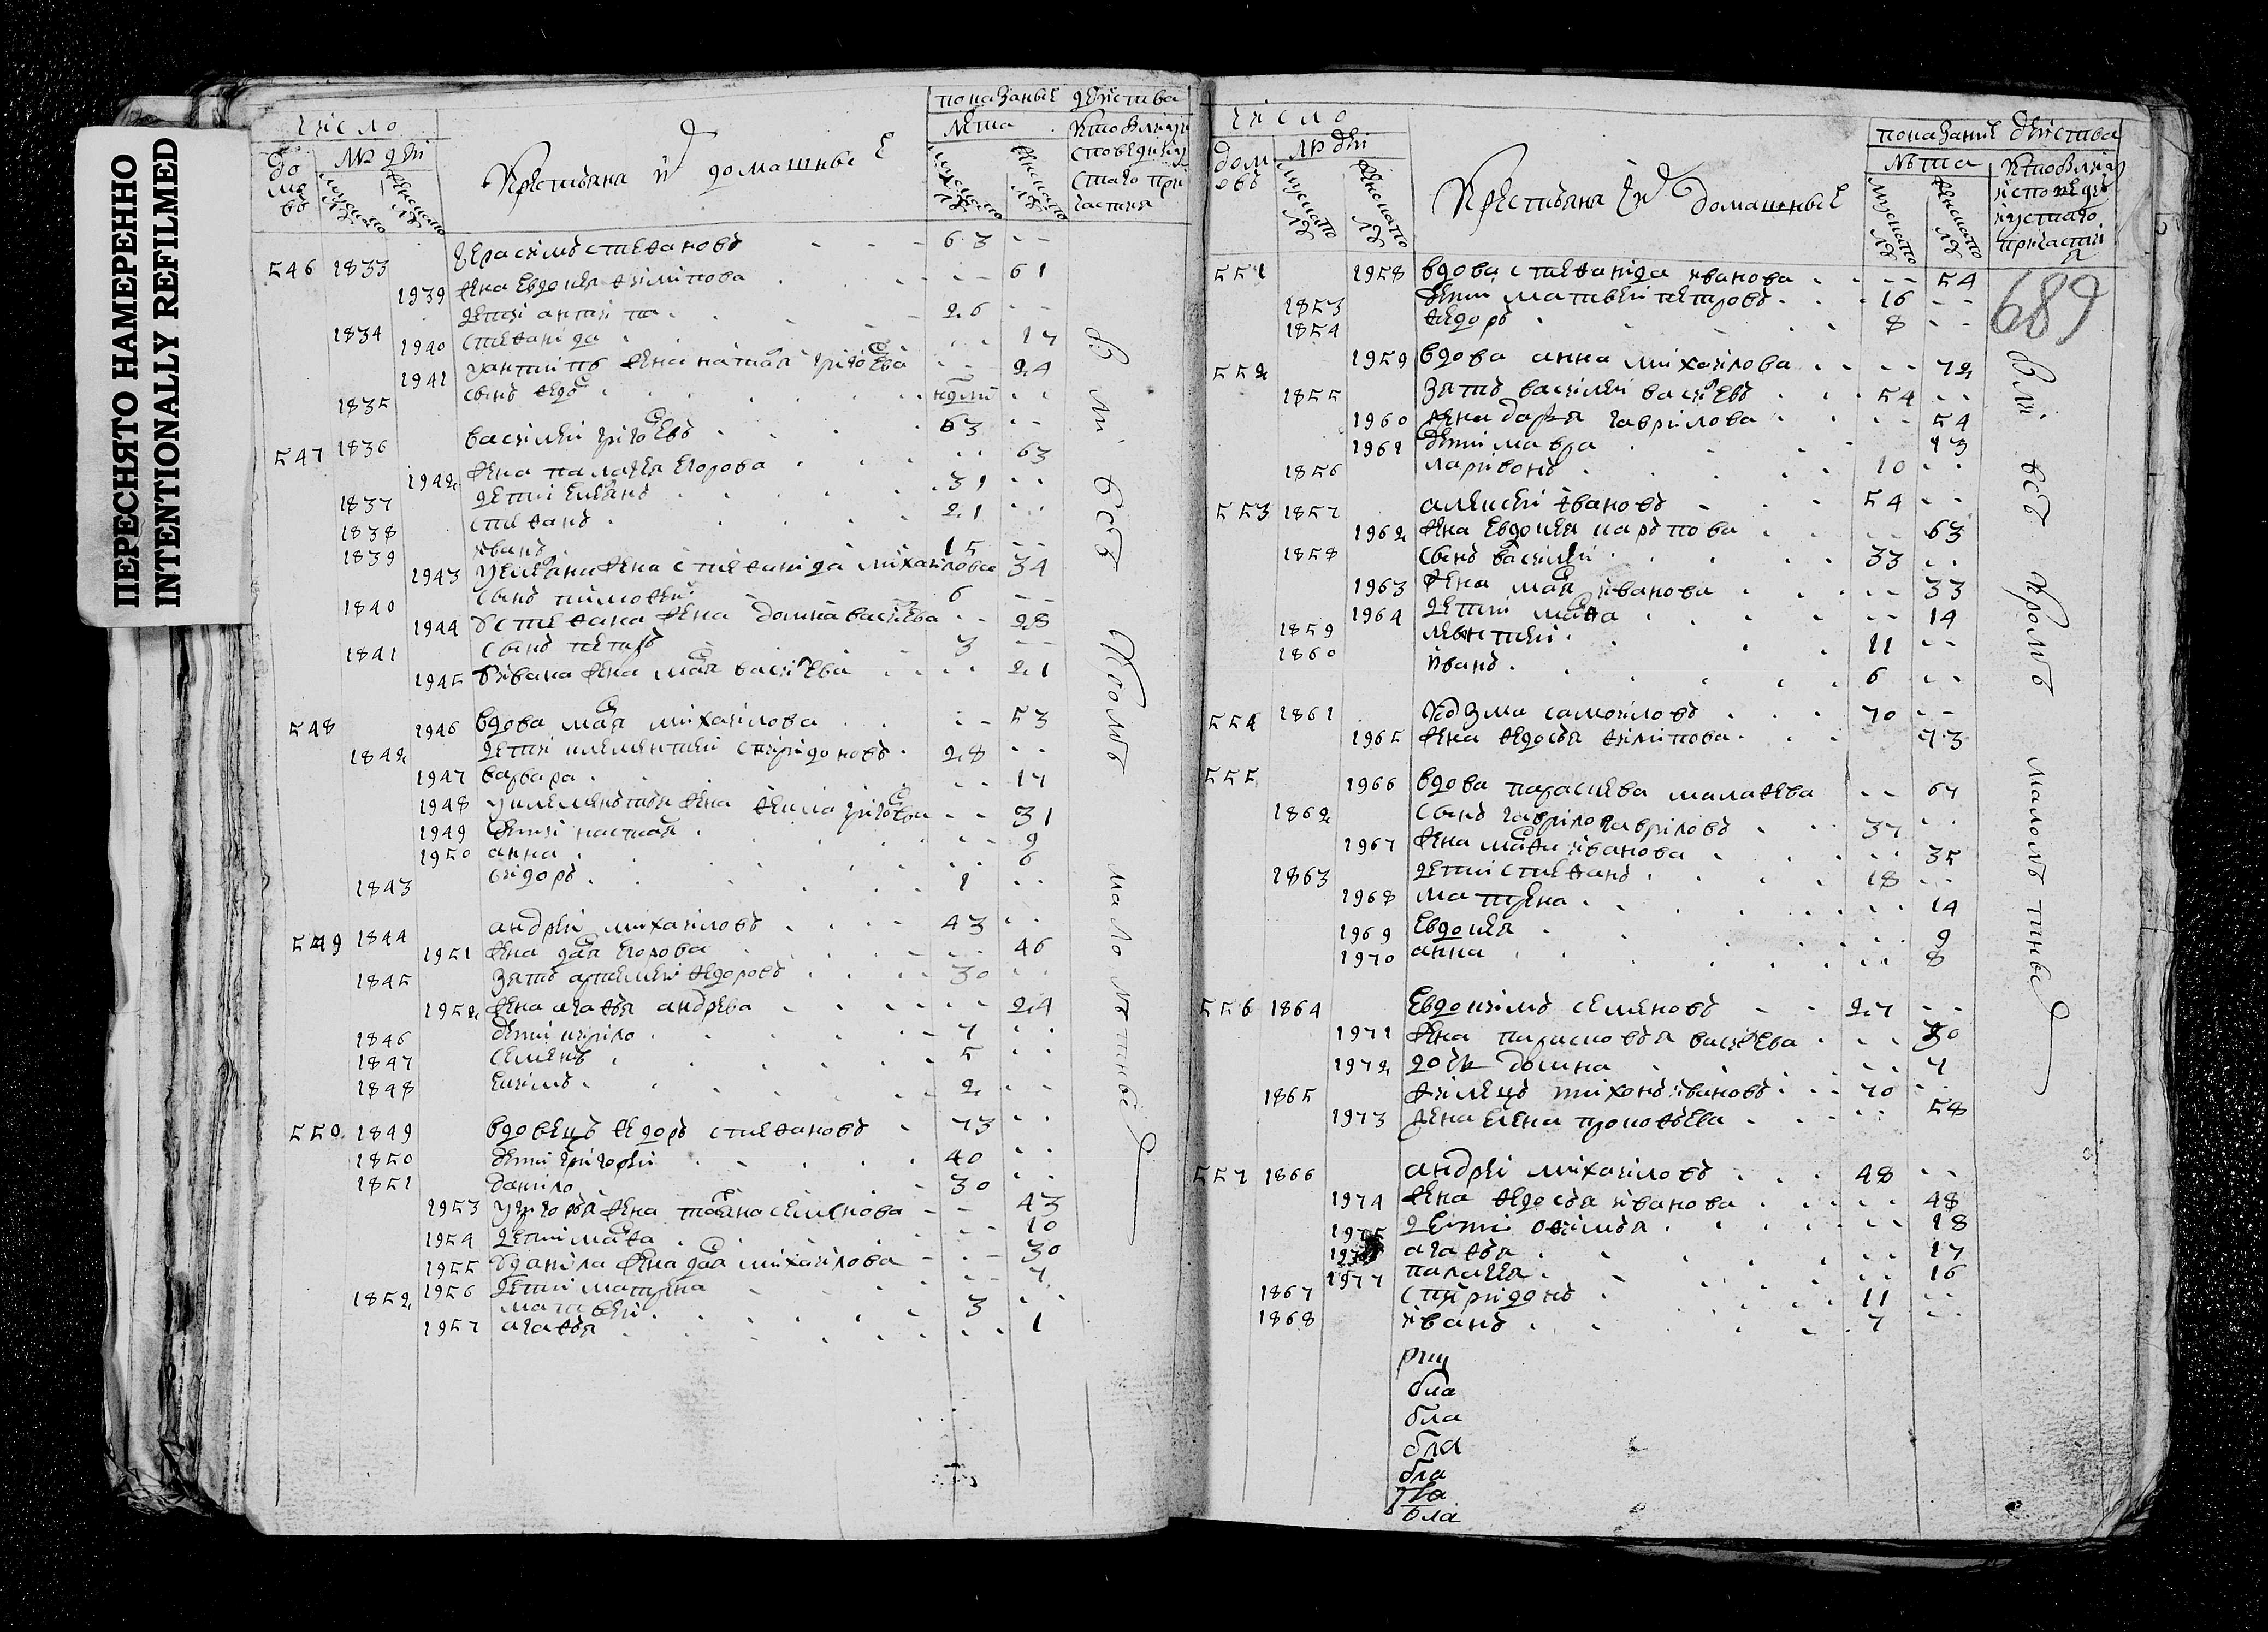 ПЕРЕСНЯТО НАМЕРЕННО
INTENTIONALLY REFILMED
число
показаные действа
лета
домовъ
людей
Крестьяна и домашные
546 1833 герасимъ степановъ 63
1939 жена евдокея филипова 61
1834 дети антипа 26
1940 степанида 17
1941 уантипы жена наталья григоева 24
1835 сынъ недели
547 1836 василеи григоевъ 63
1942 жена палагея егорова 63
1837 дети 31
1838 степанъ 21
1839 иванъ 15
1943 жена степанида михаилова 34
1840 сынъ тимофеи 6
1944 устепана жена домна васиева 28
1841 сынъ петръ 3
1945 уивана жена мая васиева 21
548 1946 вдова мая михаилова 53
1842 дети клементеи спиридоновъ 28
1947 варвара 17
1948 жена фекла григоева 31
1949 дети настася 9
1950 анна 6
1843 сидоръ 1
549 1844 андреи михаиловъ 43
1951 жена дая егорова 46
1845 зять артемеи федоровъ 30
1952 жена агафья андрева 24
1846 дети кирило 7
1847 семенъ 5
1848 екимъ 2
550 1849 вдовецъ федоръ степановъ 73
1850 дети григореи 40
1851 данило 30
1953 угригорья жена таяна семенова 43
1954 дети мафа 10
1955 уданила жена дая михаилова 30
1956 дети матрена 7
1852 матвеи 3
1957 агафья 1
вси кроме малолетные
число
показание действа
домовъ
людеи
лета
Крестьяна и домашные
689
551 1958 вдова степанида иванова 54
1853 дети матвеи петровъ 16
1854 федоръ 8
552 1959 вдова анна михаилова 72
1855 зять василеи васиевъ 54
1960 жена дарья гаврилова 54
1961 дети мавра 13
1856 ларивонъ 10
553 1857 алексеи ивановъ 54
1962 жена евдокея карпова 63
1858 сынъ василеи 33
1963 жена мая иванова 33
1964 дети мафа 14
1859 леонтеи 11
1860 иванъ 6
554 1861 козма самоиловъ 70
1965 жена федосья филипова 73
555 1966 вдова параскева малафева 67
1862 сынъ гаврило гавриловъ 37
1967 жена мафа иванова 35
1863 дети степанъ 18
1968 матрена 14
1969 евдокея 9
1970 анна 8
556 1864 евдокимъ семеновъ 27
1971 жена парасковья васиева 30
1972 дочь домна 7
1865 жилецъ тихонъ ивановъ 70
1973 жена елена прокофьева 58
557 1866 андреи михаиловъ 48
1974 жена федосья иванова 48
1975 дети афимья 18
агафья 17
1977 палагея 16
1867 спиридонъ 11
1868 иванъ 7
вси кроме малолетные
бла
бла
бла
бла
бла